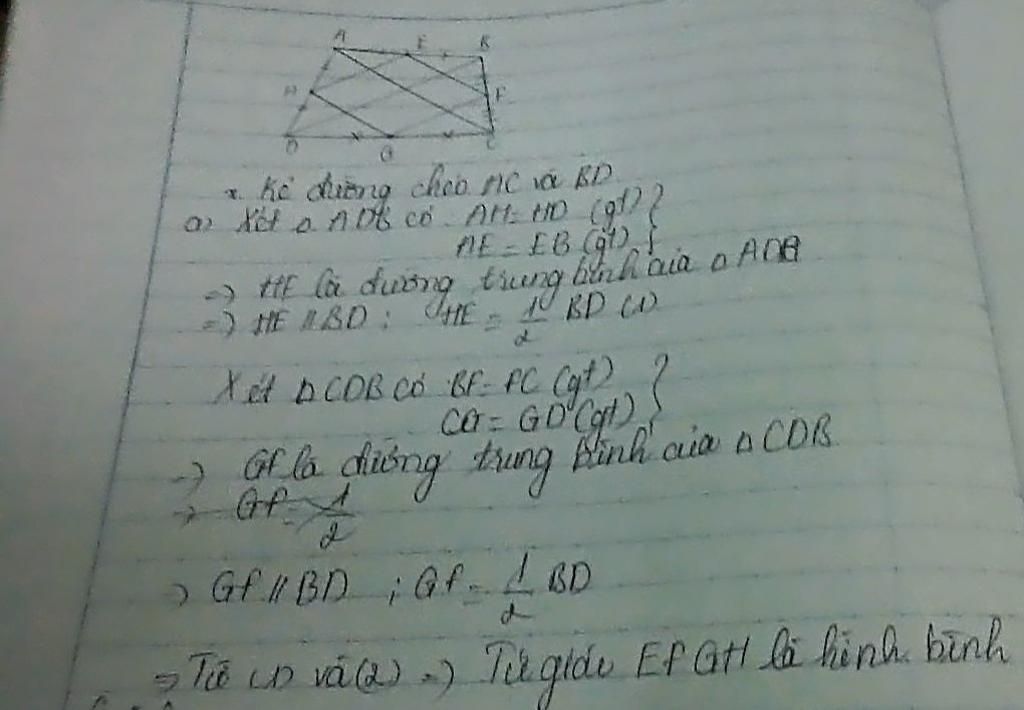 A E B
H F
D G C
* Kẻ đường chéo AC và BD
a) Xét Δ ADB có AH = HD (gt) }
AE = EB (gt) }
=) HE là đường trung bình của Δ ADB
=) HE // BD ; HE = 1/2 BD (1)
Xét Δ CDB có BF = FC (gt) }
CG = GD (gt) }
=) GF là đường trung bình của Δ CDB
→ GF = 1/2
=) GF // BD ; GF = 1/2 BD
=) Từ (1) và (2) =) Tứ giác EFGH là hình bình